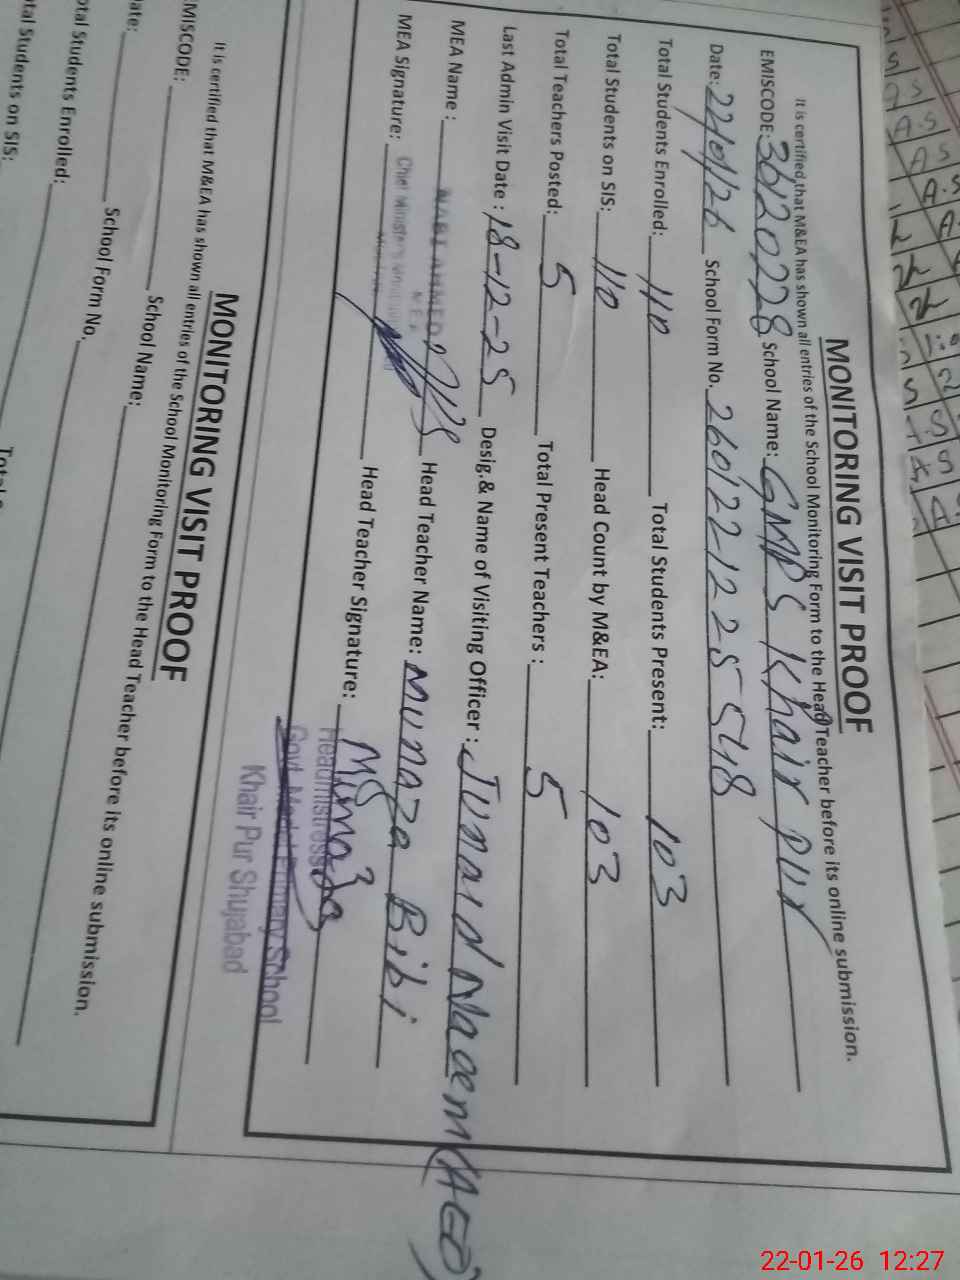 MONITORING VISIT PROOF
It is certified that M&EA has shown all entries of the School Monitoring Form to the Head Teacher before its online submission.
EMISCODE: 36120228 School Name: GMPS Khair pur
Date: 22/01/26 School Form No. 2601221225548
Total Students Enrolled: 110 Total Students Present: 103
Total Students on SIS: 110 Head Count by M&EA: 103
Total Teachers Posted: 5 Total Present Teachers : 5
Last Admin Visit Date : 18-12-25 Desig.& Name of Visiting Officer : Junaid Naeem (AEO)
MEA Name : NABI AHMED Head Teacher Name: Munaza Bibi
MEA Signature: Head Teacher Signature:
Headmistress
Govt Model Primary School
Khair Pur Shujabad
MONITORING VISIT PROOF
It is certified that M&EA has shown all entries of the School Monitoring Form to the Head Teacher before its online submission.
MISCODE: School Name:
ate: School Form No.
otal Students Enrolled:
tal Students on SIS:
22-01-26 12:27